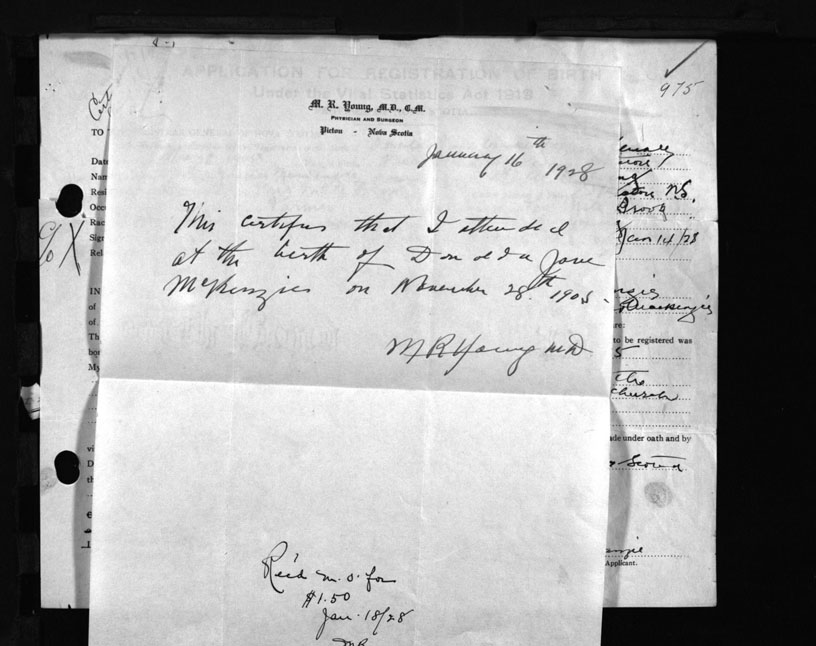 APPLICATION FOR REGISTRATION OF BIRTH
Under the Vital Statistics Act 1918
975
M. R. Young, M.D., C.M.
PHYSICIAN AND SURGEON
Pictou - Nova Scotia
January 16th 1928
This certifies that I attended
at the birth of Donalda Jane
McKenzie on November 28th 1905.
M R Young MD
Rec'd m. o. for
$1.50
Jan. 18/28
MR
TO
Date
Nam
Resi
Occ
Rac
Sig
Rel
% X
IN
of
of
Th
bor
My
vi
D
th
N.S.
Brook
Jan 14/28
Mackenzie
re:
to be registered was
5
the
Church
ade under oath and by
Applicant.